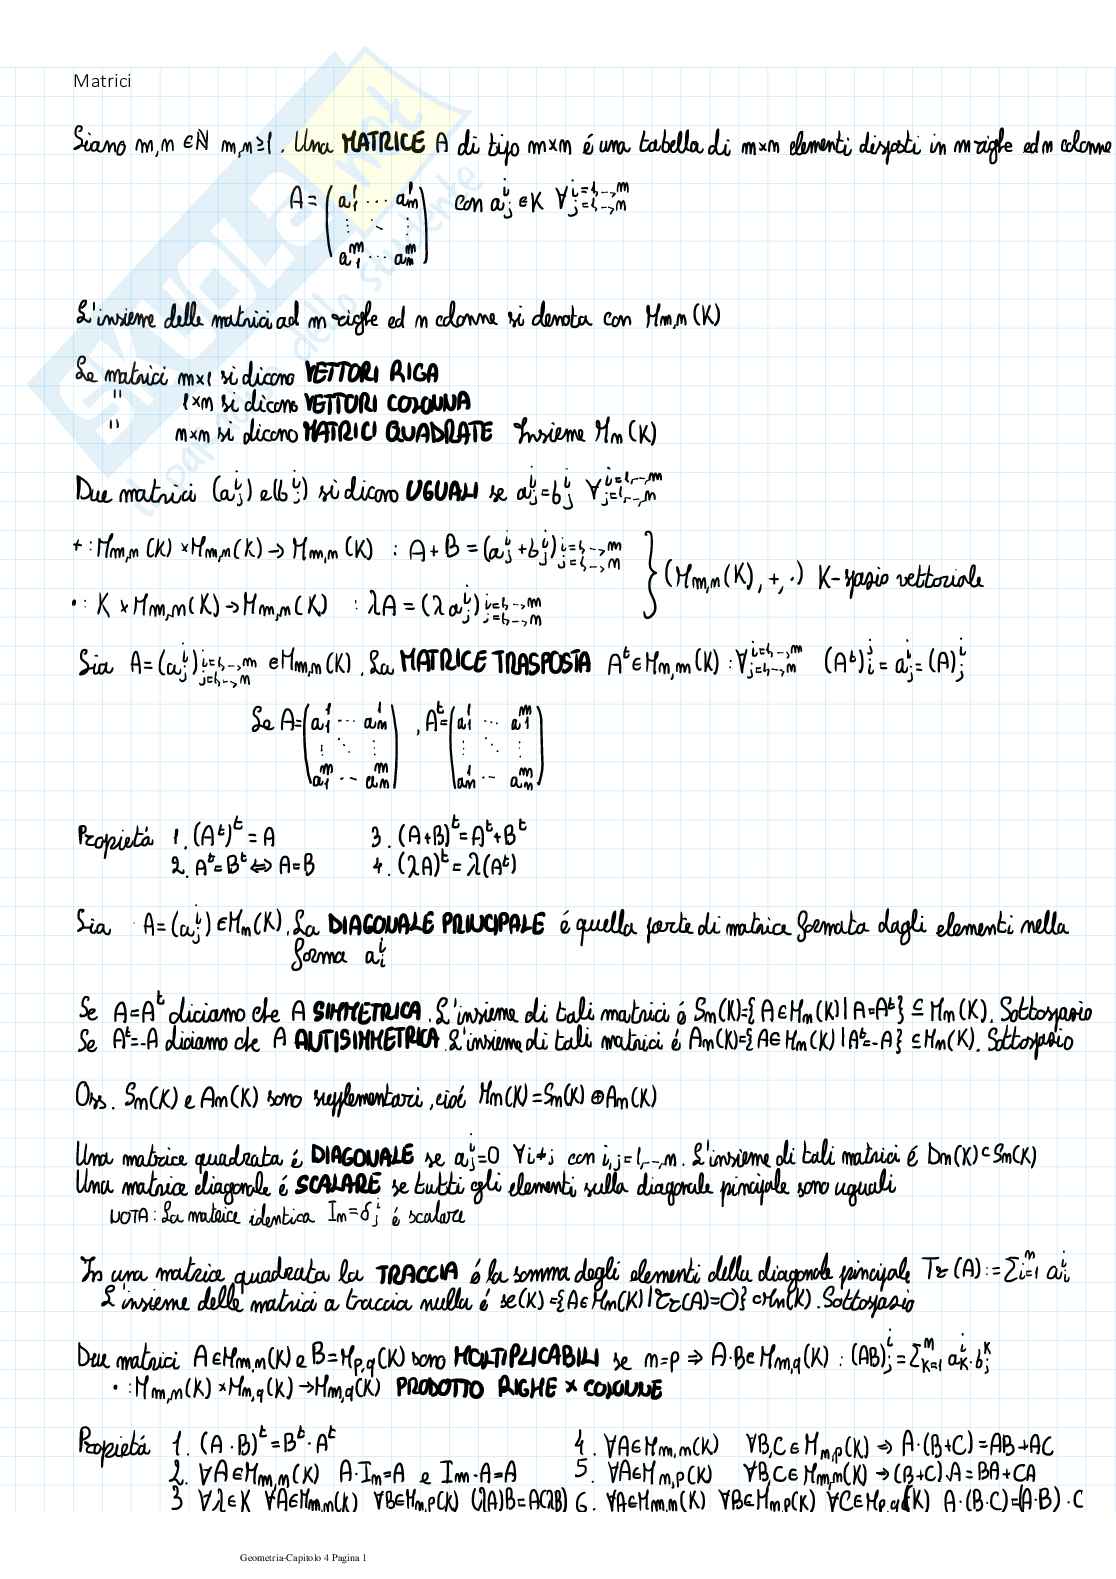 Matrici
Siano m,n ∈ ℕ m,n ≥ 1. Una MATRICE A di tipo m×n é una tabella di m×n elementi disposti in m righe ed n colonne
A = (a¹₁ ... a¹ₙ ⋮ ⋱ ⋮ aᵐ₁ ... aᵐₙ) con aⁱⱼ ∈ K ∀ i=1,--,m j=1,--,n
L'insieme delle matrici ad m righe ed n colonne si denota con Mm,n(K)
Le matrici m×1 si dicono VETTORI RIGA
" 1×m si dicono VETTORI COLONNA
" m×m si dicono MATRICI QUADRATE Insieme Mn(K)
Due matrici (aⁱⱼ) e (bⁱⱼ) si dicono UGUALI se aⁱⱼ = bⁱⱼ ∀ i=1,--,m j=1,--,n
+ : Mm,n(K) × Mm,n(K) → Mm,n(K) : A+B = (aⁱⱼ + bⁱⱼ) i=1,--,m j=1,--,n
(Mm,n(K), +, ·) K-spazio vettoriale
· : K × Mm,n(K) → Mm,n(K) : λA = (λaⁱⱼ) i=1,--,m j=1,--,n
Sia A = (aⁱⱼ) i=1,--,m j=1,--,n ∈ Mm,n(K). La MATRICE TRASPOSTA Aᵗ ∈ Mn,m(K) : ∀ i=1,--,m j=1,--,n (Aᵗ)ʲᵢ = aⁱⱼ = (A)ⁱⱼ
Se A = (a¹₁ ... a¹ₙ ⋮ ⋱ ⋮ aᵐ₁ ... aᵐₙ), Aᵗ = (a¹₁ ... aᵐ₁ ⋮ ⋱ ⋮ a¹ₙ ... aᵐₙ)
Propietá 1. (Aᵗ)ᵗ = A 3. (A+B)ᵗ = Aᵗ + Bᵗ
2. Aᵗ = Bᵗ ⇔ A = B 4. (λA)ᵗ = λ(Aᵗ)
Sia A = (aⁱⱼ) ∈ Mn(K). La DIAGONALE PRINCIPALE é quella parte di matrice formata dagli elementi nella
forma aⁱᵢ
Se A = Aᵗ diciamo che A SIMMETRICA. L'insieme di tali matrici é Sn(K) = {A ∈ Mn(K) | A = Aᵗ} ⊆ Mn(K). Sottospazio
Se Aᵗ = -A diciamo che A AUTISIMMETRICA. L'insieme di tali matrici é An(K) = {A ∈ Mn(K) | Aᵗ = -A} ⊆ Mn(K). Sottospazio
Oss. Sn(K) e An(K) sono supplementari, cioé Mn(K) = Sn(K) ⊕ An(K)
Una matrice quadrata é DIAGONALE se aⁱⱼ = 0 ∀ i≠j con i,j = 1,--,n. L'insieme di tali matrici é Dn(K) ⊂ Sn(K)
Una matrice diagonale é SCALARE se tutti gli elementi sulla diagonale pincipale sono uguali
NOTA : La matrice identica In = δⁱⱼ é scalare
In una matrice quadrata la TRACCIA é la somma degli elementi della diagonale pincipale Tr(A) := Σⁿᵢ₌₁ aⁱᵢ
L'insieme delle matrici a traccia nulla é se(K) = {A ∈ Mn(K) | Tr(A) = 0} ⊂ Mn(K). Sottospazio
Due matrici A ∈ Mm,n(K) e B = Mp,q(K) sono MOLTIPLICABILI se n = p ⇒ A·B ∈ Mm,q(K) : (AB)ⁱⱼ = Σⁿₖ₌₁ aⁱₖ · bᵏⱼ
· : Mm,n(K) × Mn,q(K) → Mm,q(K) PRODOTTO RIGHE × COLONNE
Propietá 1. (A·B)ᵗ = Bᵗ·Aᵗ 4. ∀A ∈ Mm,n(K) ∀B,C ∈ Mn,p(K) → A·(B+C) = AB + AC
2. ∀A ∈ Mm,n(K) A·In = A e Im·A = A 5. ∀A ∈ Mn,p(K) ∀B,C ∈ Mm,n(K) → (B+C)·A = BA + CA
3 ∀λ ∈ K ∀A ∈ Mm,n(K) ∀B ∈ Mn,p(K) (λA)B = A(λB) 6. ∀A ∈ Mm,n(K) ∀B ∈ Mn,p(K) ∀C ∈ Mp,q(K) A·(B·C) = (A·B)·C
Geometria-Capitolo 4 Pagina 1